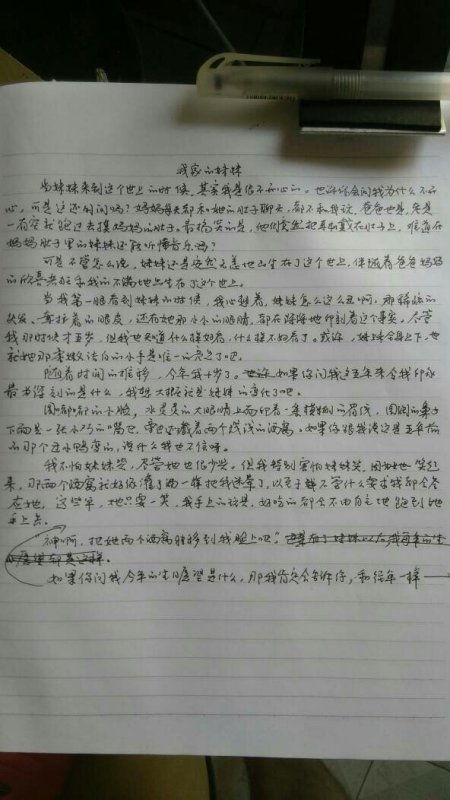 我家的妹妹
当妹妹来到这个世上的时候,其实我是很不开心的。也许你会问我为什么不开
心,可是这还用问吗?妈妈每天都和她的肚子聊天,都不和我说,爸爸也是,老是
一有空就跑过去摸妈妈的肚子。最搞笑的是,他们竟然把耳机戴在肚子上,难道在
妈妈肚子里的妹妹还能听懂音乐吗?
可是不管怎么说,妹妹还是安然无恙地出生在了这个世上,伴随着爸爸妈妈
的欣喜和我的不满地出生在了这个世上。
当我第一眼看到妹妹的时候,我心想着,妹妹怎么这么丑啊,那稀疏的
头发,耷拉着的眼皮,还有她那小小的眼睛,都在深深地印刻着这个事实。尽管
我那时候才五岁,但我也知道什么像好看,什么像不好看了。或许,妹妹全身上下,也
就她那素嫩洁白的小手是唯一的亮点了吧。
随着时间的推移,今年我十岁了。如果你问我这五年来令我印象
最为深刻的是什么,我想大概就是妹妹的变化了吧。
圆嘟嘟的小脸,水灵灵的大眼睛上面印着一条模糊的眉线,圆圆的鼻子
下面是一张小巧的嘴巴,旁边还藏着两个浅浅的酒窝。如果你跟我说这是五年前
的那个丑小鸭变的,说什么我也不信呀。
我不怕妹妹哭,尽管她也很少哭。但我特别害怕妹妹笑,因为她一笑起
来,那两个酒窝就好像灌了酒一样把我迷晕了,以至于无论什么要求我都会答
应她,这些年,她只要一笑,我手上的玩具,好吃的都会不由自主地跑到她
手上去。
神啊,把她两个酒窝转移到我脸上吧。
如果你问我今年的生日愿望是什么,那我肯定会告诉你,和往年一样——